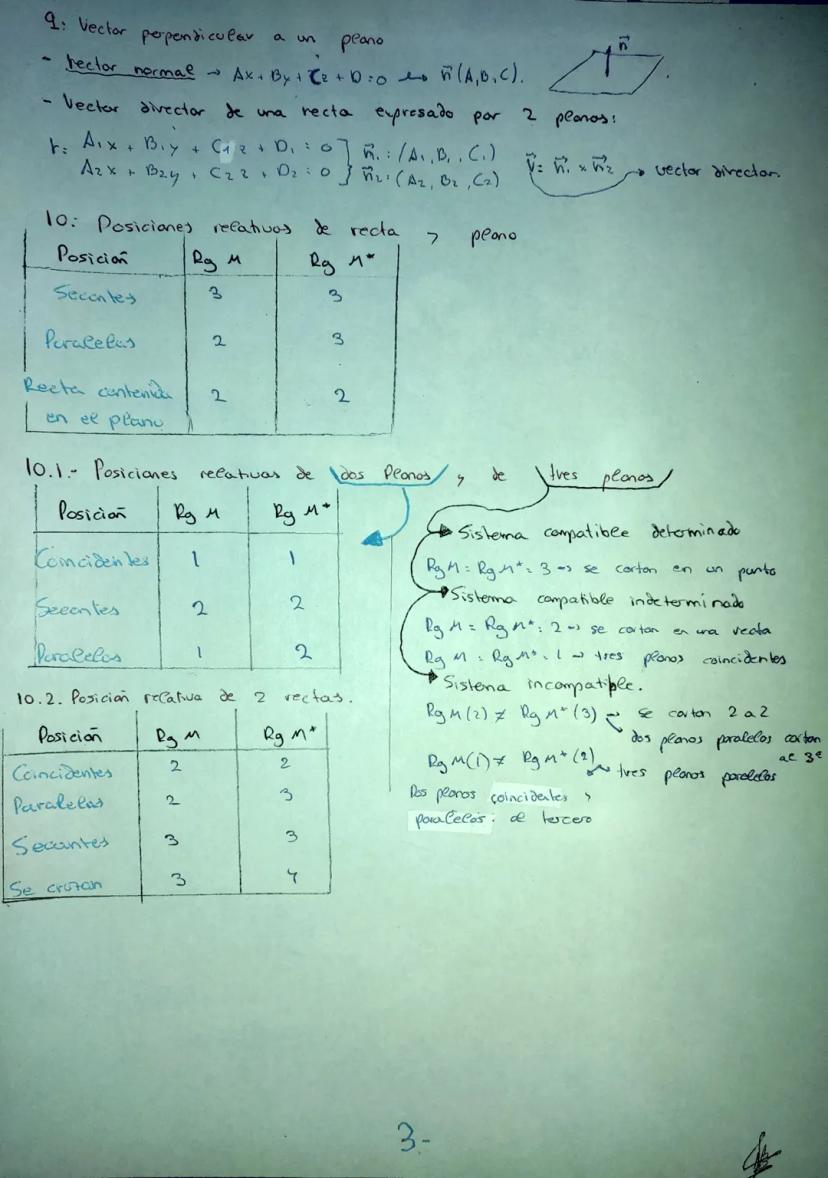 9: Vector perpendicular a un plano
- Vector normal → Ax + By + Cz + D = 0 ↔ n⃗ (A, B, C).
n⃗
- Vector director de una recta expresado por 2 planos:
r: A₁x + B₁y + C₁z + D₁ = 0 ] n⃗₁ : (A₁, B₁, C₁)
A₂x + B₂y + C₂z + D₂ = 0 } n⃗₂ : (A₂, B₂, C₂)
v⃗ = n⃗₁ × n⃗₂ → vector director.
10: Posiciones relativas de recta y plano
Posición Rg M Rg M*
Secantes 3 3
Paralelas 2 3
Recta contenida 2 2
en el plano
10.1.- Posiciones relativas de dos Planos y de tres planos
Posición Rg M Rg M*
Coincidentes 1 1
Secantes 2 2
Paralelos 1 2
Sistema compatible determinado
Rg M = Rg M* = 3 → se cortan en un punto
Sistema compatible indeterminado
Rg M = Rg M* = 2 → se cortan en una recta
Rg M = Rg M* = 1 → tres planos coincidentes
Sistema incompatible.
Rg M (2) ≠ Rg M* (3) → se cortan 2 a 2
dos planos paralelos cortan
al 3º
Rg M (1) ≠ Rg M* (2)
tres planos paralelos
Dos planos coincidentes y
paralelos al tercero
10.2. Posición relativa de 2 rectas.
Posición Rg M Rg M*
Coincidentes 2 2
Paralelas 2 3
Secantes 3 3
Se cruzan 3 4
3-